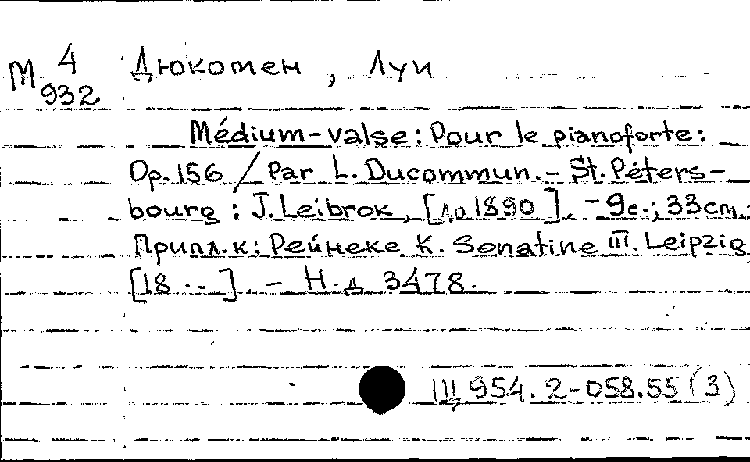 М 4 Дюкомен, Луи
932
Médium-valse: Pour le pianoforte:
Op. 156 / Par L. Ducommun. - St. Péters-
bourg: J. Leibrok, [до 1890]. - 9c.; 33cm.
Припл. к: Рейнеке К. Sonatine III. Leipzig
[18 ..]. - Н. д 3478.
Щ 954.2-058.55 (3)